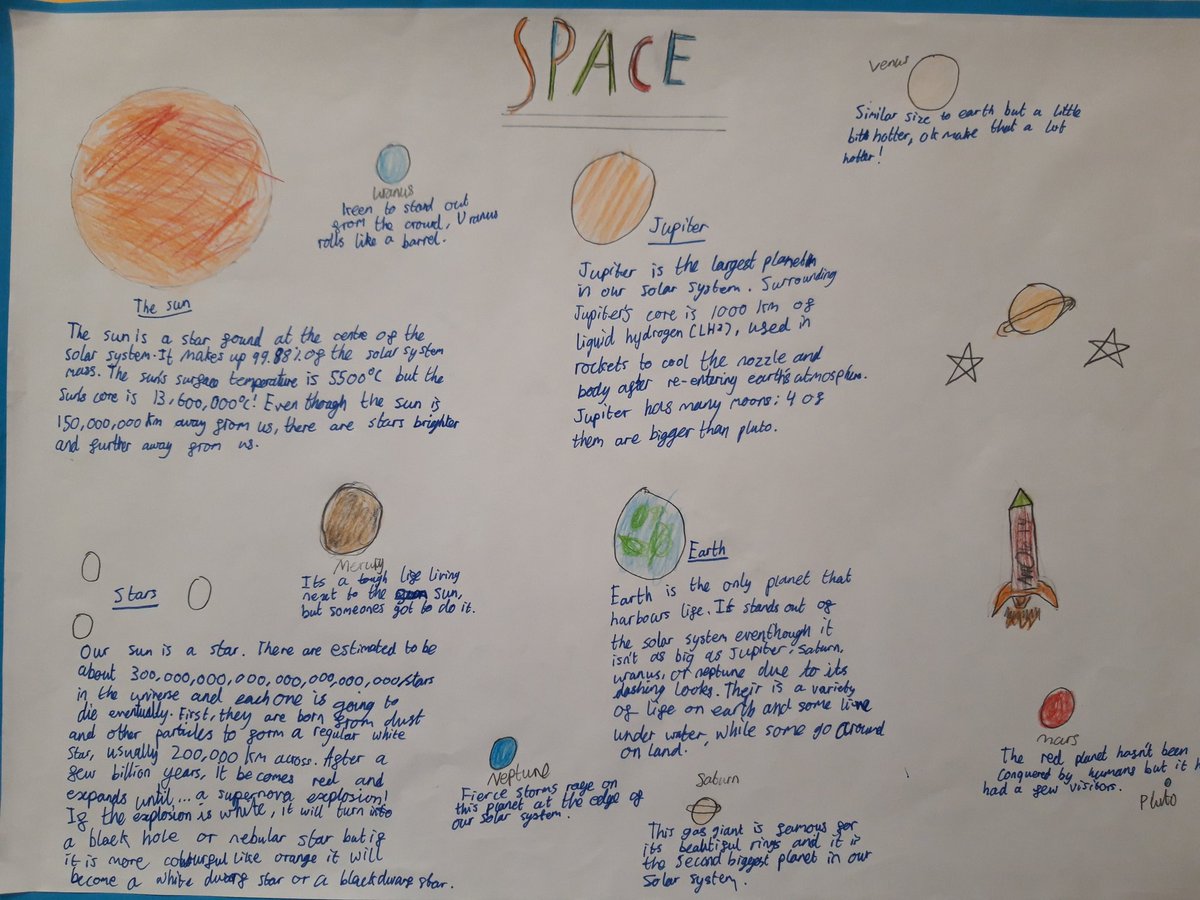 SPACE
The sun
The sun is a star found at the centre of the
solar system. It makes up 99.88% of the solar system
mass. The sun's surface temperature is 5500°C but the
suns core is 13,600,000°C! Even though the sun is
150,000,000 km away from us, there are stars brighter
and further away from us.
Uranus
Keen to stand out
from the crowd, Uranus
rolls like a barrel.
Jupiter
Jupiter is the largest planet
in our solar system. Surrounding
Jupiter's core is 1000 km of
liquid hydrogen (LH2), used in
rockets to cool the nozzle and
body after re-entering earth's atmosphere.
Jupiter has many moons; 4 of
them are bigger than pluto.
Venus
Similar size to earth but a little
bit hotter, ok make that a lot
hotter!
Mercury
Its a tough life living
next to the sun,
but someones got to do it.
Stars
Our sun is a star. There are estimated to be
about 300,000,000,000,000,000,000,000 stars
in the universe and each one is going to
die eventually. First, they are born from dust
and other particles to form a regular white
star, usually 200,000 km across. After a
few billion years, it becomes red and
expands until... a supernova explosion!
If the explosion is white, it will turn into
a black hole or nebular star but if
it is more colourful like orange it will
become a white dwarf star or a black dwarf star.
Earth
Earth is the only planet that
harbours life. It stands out of
the solar system eventhough it
isn't as big as Jupiter, Saturn,
uranus, or neptune due to its
dashing looks. Their is a variety
of life on earth and some live
under water, while some go around
on land.
Neptune
Fierce storms rage on
this planet at the edge of
our solar system.
Saturn
This gas giant is famous for
its beautiful rings and it is
the second biggest planet in our
Solar system.
mars
The red planet hasn't been
conquered by humans but it h
had a few visitors.
Pluto